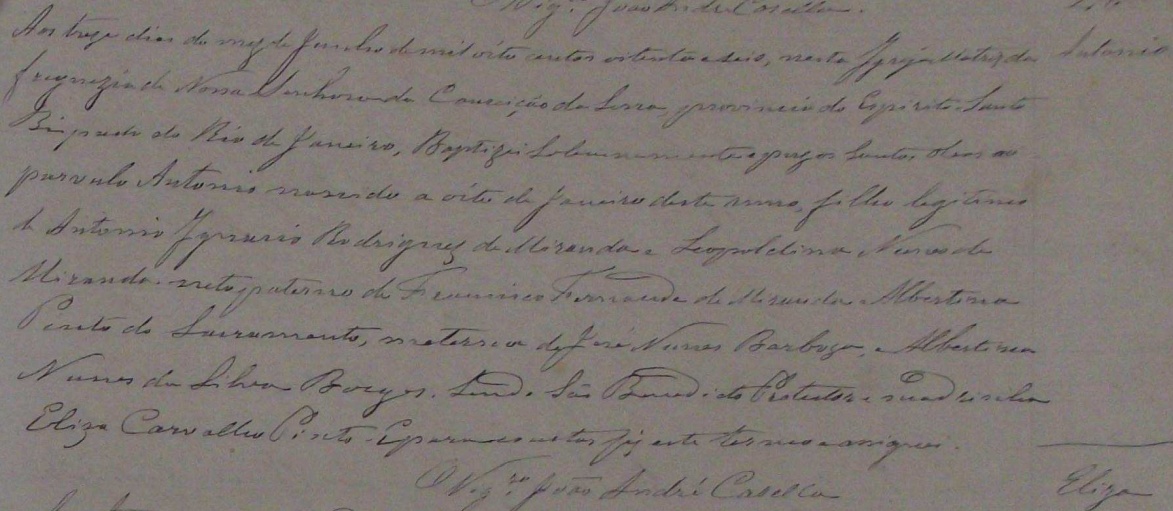 O Vigr.º João André Casella.
Aos treze dias do mez de Junho de mil oito centos oitenta e seis, nesta Igreja Matriz da Antonio
freguezia de Nossa Senhora da Conceição da Serra, provincia do Espirito-Santo
Bispado do Rio de Janeiro, Baptizei solemnemente e puz os santos oleos ao
parvulo Antonio nascido a oito de Janeiro deste anno, filho legitimo
de Antonio Ignacio Rodrigues de Miranda e Leopoldina Nunes de
Miranda. neto paterno de Francisco Fernande de Miranda Albertina
Pinto do Sacramento, materno de José Nunes Barboza, e Albertina
Nunes da Silva Borges. Sendo São Benedicto Protector e
Eliza Carvalho Pinto. E para constar fiz este termo e assignei.
O Vigr.º João André Casella
Eliza